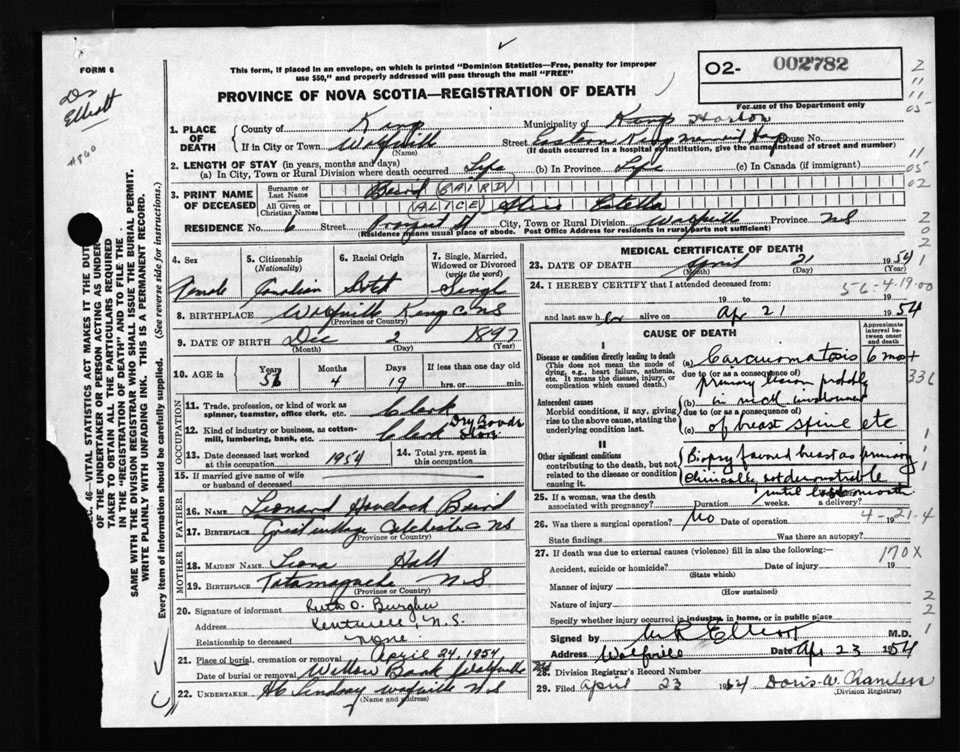 FORM 6
Dr Elliott
#860
This form, if placed in an envelope, on which is printed "Dominion Statistics—Free, penalty for improper
use $50," and properly addressed will pass through the mail "FREE"
PROVINCE OF NOVA SCOTIA—REGISTRATION OF DEATH
02- 002782
For use of the Department only
1. PLACE OF DEATH
County of Kings Municipality of Kings
If in City or Town Wolfville Street Eastern Kings Memorial Hosp House No.
(Name) (If death occurred in a hospital or institution, give the name instead of street and number)
2. LENGTH OF STAY (in years, months and days)
(a) In City, Town or Rural Division where death occurred Life (b) In Province Life (c) In Canada (if immigrant)
3. PRINT NAME OF DECEASED
Surname or Last Name Baird (BAIRD)
All Given or Christian Names (ALICE) Alice Estella
RESIDENCE No. 6 Street Prospect St City, Town or Rural Division Wolfville Province N.S
(Residence means usual place of abode. Post Office Address for residents in rural parts not sufficient)
4. Sex Female
5. Citizenship (Nationality) Canadian
6. Racial Origin Scotch
7. Single, Married, Widowed or Divorced (write the word) Single
8. BIRTHPLACE Wolfville Kings C NS
(Province or Country)
9. DATE OF BIRTH Dec 2 1897
(Month) (Day) (Year)
10. AGE Years 56 Months 4 Days 19 If less than one day old
hrs. or min.
OCCUPATION
11. Trade, profession, or kind of work as spinner, teamster, office clerk, etc. Clerk
12. Kind of industry or business, as cotton-mill, lumbering, bank, etc. Clerk Dry Goods Store
13. Date deceased last worked at this occupation 1954
14. Total yrs. spent in this occupation
15. If married give name of wife or husband of deceased
FATHER
16. NAME Leonard Baird
17. BIRTHPLACE Great Village Colchester C NS
(Province or Country)
MOTHER
18. MAIDEN NAME Hall
19. BIRTHPLACE Tatamagouche N.S
(Province or Country)
20. Signature of informant Ruth O.
Address Kentville N.S.
Relationship to deceased None
21. Place of burial, cremation or removal April 24, 1954
Date of burial or removal Willow Bank Wolfville
22. UNDERTAKER HC Lindsay Wolfville N S
(Name and address)
MEDICAL CERTIFICATE OF DEATH
23. DATE OF DEATH April 21 1954
(Month) (Day) (Year)
24. I HEREBY CERTIFY that I attended deceased from:
19 to 19
and last saw her alive on Apr 21 1954
CAUSE OF DEATH
Approximate interval between onset and death
I
Disease or condition directly leading to death
(This does not mean the mode of dying, e.g., heart failure, asthenia, etc. It means the disease, injury, or complication which caused death.)
(a) Carcinomatosis 6 mos+
due to (or as a consequence of)
primary lesion probably
Antecedent causes
Morbid conditions, if any, giving rise to the above cause, stating the underlying condition last.
(b) in
due to (or as a consequence of)
(c) of breast spine etc
II
Other significant conditions
contributing to the death, but not related to the disease or condition causing it.
Biopsy favored breast as primary
Clinically not demonstrable
until last month
25. If a woman, was the death associated with pregnancy? Duration weeks. a delivery?
26. Was there a surgical operation? No Date of operation
State findings Was there an autopsy?
27. If death was due to external causes (violence) fill in also the following:—
Accident, suicide or homicide? 19
(State which)
170X
Manner of injury
(How sustained)
Nature of injury
Specify whether injury occurred in industry, in home, or in public place
Signed by Elliott M.D.
Address Wolfville Date Apr 23 1954
28. Division Registrar's Record Number
29. Filed April 23 1954 Doris W. Chambers
(Division Registrar)
SEC. 46—VITAL STATISTICS ACT MAKES IT THE DUTY
OF THE UNDERTAKER OR PERSON ACTING AS UNDER-
TAKER TO OBTAIN ALL THE PARTICULARS REQUIRED
IN THE "REGISTRATION OF DEATH" AND TO FILE THE
SAME WITH THE DIVISION REGISTRAR WHO SHALL ISSUE THE BURIAL PERMIT.
WRITE PLAINLY WITH UNFADING INK. THIS IS A PERMANENT RECORD.
Every item of information should be carefully supplied. (See reverse side for instructions.)